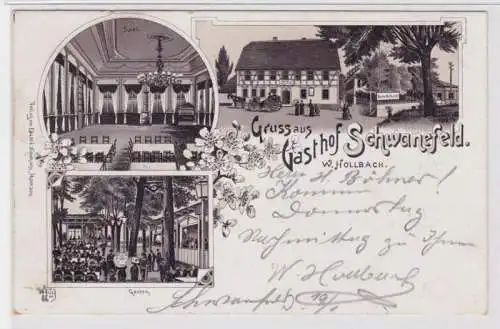 Saal.
Gruss aus
Gasthof Schwanefeld.
W. HOLLBACH.
Herrn H. Böhner!
Komme
Donnerstag
Nachmittag zu Ihnen
W. Hollbach
Schwanefeld
Garten.